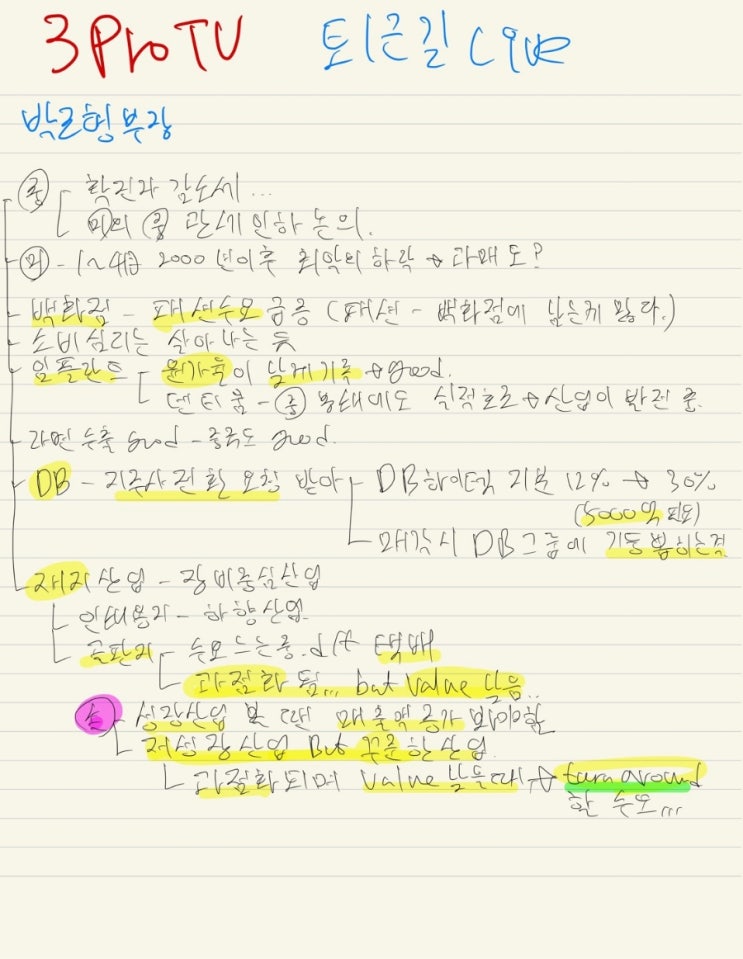 3Pro TV 퇴근길 Live
박근형부장
중 확진자 감소세...
미의 중 관세 인하 논의.
미 - 1~4月 2000년이후 최악의 하락 → 과매도?
백화점 - 패션수요 급증 (패션 - 백화점에 남는게 많다.)
소비심리는 살아나는 듯
임플란트 원가율이 낮게 기록 → good.
덴티움 - 중 봉쇄에도 실적호조 → 산업이 발전 중.
라면 수출 good - 중국도 good.
DB - 지주사 전환 요청 받아 DB하이텍 지분 12% → 30%
(5000억 필요)
매각시 DB그룹에 기둥 뽑히는격
제지산업 - 장비중심산업
인쇄용지 - 하향산업.
골판지 - 수요 느는중. 택배
과점화 됨... but value 낮음..
성장산업 볼 때면 매출액 증가 봐야함
저성장산업 But 꾸준한산업.
과점화되며 value 낮을때, → turn around
할 수도...